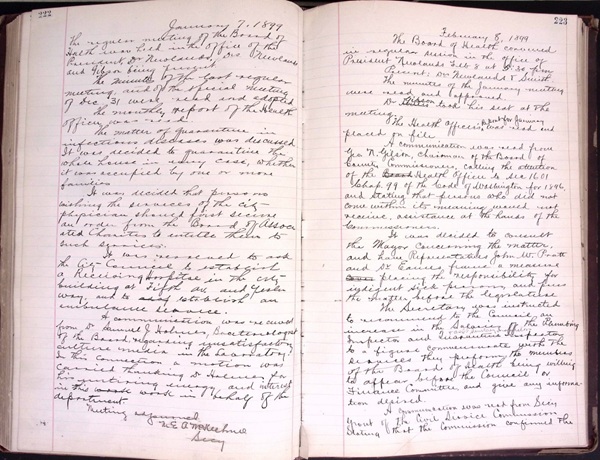 222
January 7. 1899
The regular meeting of the Board of
Health was held in the office of the
President, Dr Newlands, Drs Newlands
and Gibson being present.
The minutes of the last regular
meeting, and of the special meeting
of Dec. 31 were read and adopted
The monthly report of the Health
officer was read.
The matter of quarantine in
infectious diseases was discussed
It was decided to quarantine the
whole house in every case, whether
it was occupied by one or more
families
It was decided that persons
wishing the services of the city
physician should first secure
an order from the Board of Assoc
iated Charities to entitle them to
such services.
It was resolved to ask
the City Council to establish
a Receiving Hospital in the city
building at Fifth av and Yesler
way, and to establish an
ambulance service.
A communication was received
from Dr Samuel J. Holmes, Bacteriologist
of the Board regarding unsatisfactory
culture media in the Laboratory.
In this connection a motion was
carried thanking Dr Holmes for
his untiring energy, and interest
in the work in behalf of the
department.
Meeting adjourned
E. A. McKechnie
Secy
223
February 8, 1899
The Board of Health convened
in regular session in the office of
President Newlands Feb 8 at 5:30 P.M.
Present: Drs Newlands & Smith
The minutes of the January meeting
were read and approved.
Dr Gibson took his seat at the
meeting.
The Health Officers report for January was read and
placed on file.
A communication was read from
Geo. N. Gilson, Chairman of the Board of
County Commissioners, calling the attention
of the Health Officer to Sec 1601
Chap. 99 of the Code of Washington for 1896,
and stating that persons who did not
come within its meaning would not
receive assistance at the hands of the
Commissioners.
It was decided to consult
the Mayor concerning the matter,
and have Representatives John W. Pratt
and Dr frame a measure
placing the responsibility for
indigent sick persons, and
the matter before the legislature
The Secretary was instructed
to recommend to the Council an
increase in the Salaries of the Plumbing
Inspector and Quarantine Inspector
to a figure commensurate with the
services they perform, the members
of the Board of Health being willing
to appear before the Council or
Finance Committee and give any informa-
tion desired.
A communication was read from Secy
Grout of the Civil Service Commission
stating that the Commission confirmed the